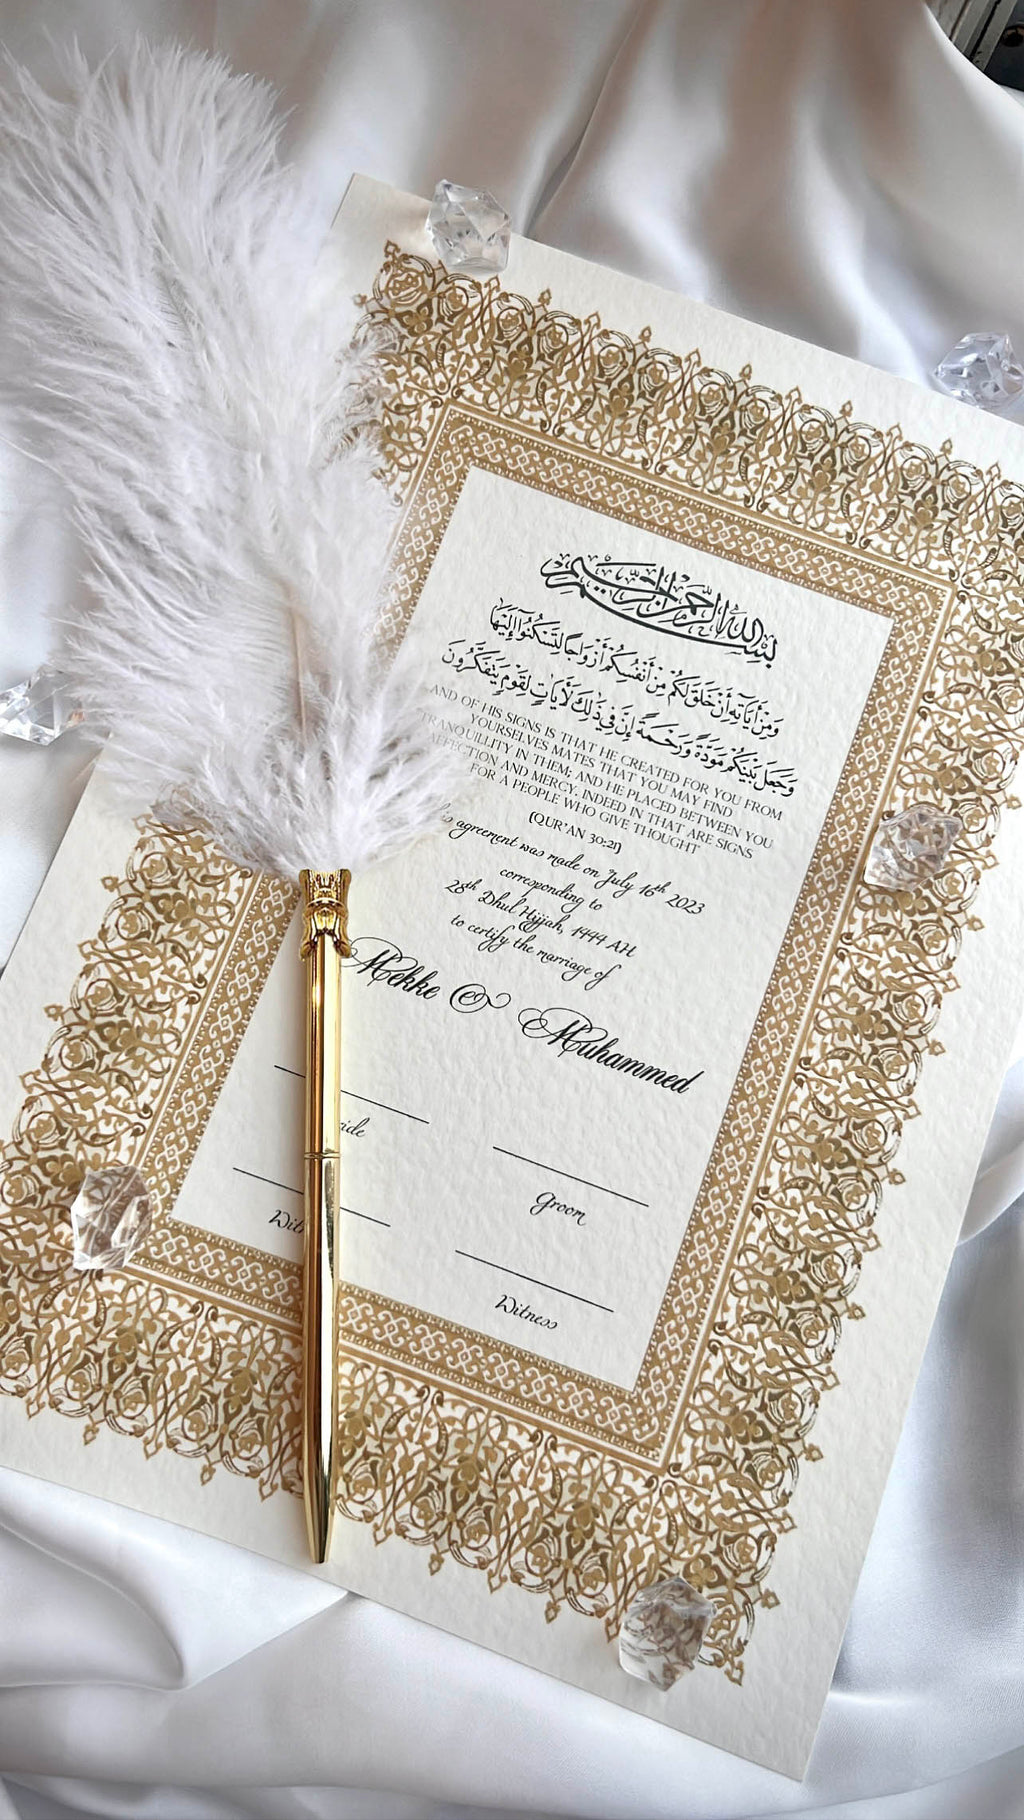 بسم الله الرحمن الرحيم
وَمِنْ آيَاتِهِ أَنْ خَلَقَ لَكُمْ مِنْ أَنْفُسِكُمْ أَزْوَاجًا لِتَسْكُنُوا إِلَيْهَا
وَجَعَلَ بَيْنَكُمْ مَوَدَّةً وَرَحْمَةً إِنَّ فِي ذَلِكَ لَآيَاتٍ لِقَوْمٍ يَتَفَكَّرُونَ
AND OF HIS SIGNS IS THAT HE CREATED FOR YOU FROM
YOURSELVES MATES THAT YOU MAY FIND
TRANQUILLITY IN THEM; AND HE PLACED BETWEEN YOU
AFFECTION AND MERCY. INDEED IN THAT ARE SIGNS
FOR A PEOPLE WHO GIVE THOUGHT
(QUR'AN 30:21)
agreement was made on July 16th 2023
corresponding to
28th Dhul Hijjah, 1444 AH
to certify the marriage of
Mekke & Muhammed
Groom
Witness